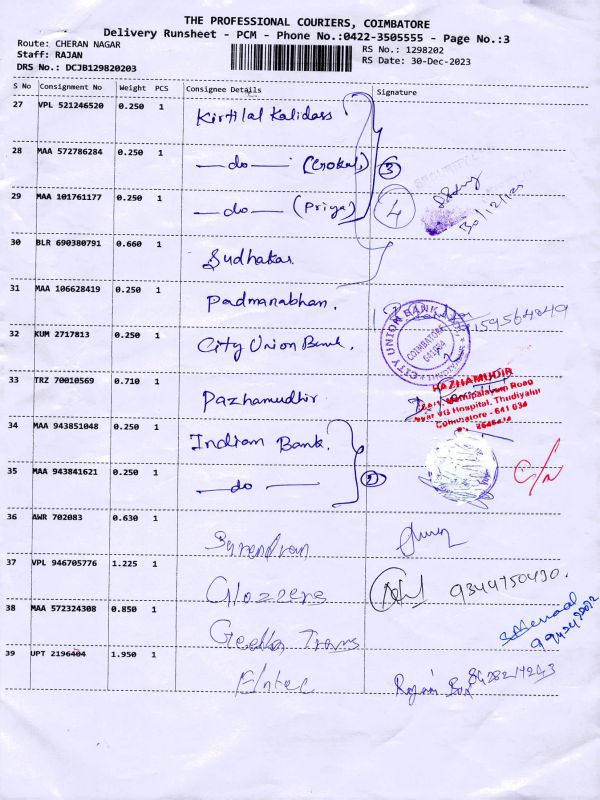 THE PROFESSIONAL COURIERS, COIMBATORE
Delivery Runsheet - PCM - Phone No.:0422-3505555 - Page No.:3
Route: CHERAN NAGAR
Staff: RAJAN
DRS No.: DCJB129820203
RS No.: 1298202
RS Date: 30-Dec-2023
S No Consignment No Weight PCS Consignee Details Signature
27 VPL 521246520 0.250 1 Kirtilal Kalidass
28 MAA 572786284 0.250 1 —do— (Gokul) 3
29 MAA 101761177 0.250 1 —do— (Priya) 4 30/12/23
30 BLR 690380791 0.660 1 Sudhakar
31 MAA 106628419 0.250 1 Padmanabhan.
32 KUM 2717813 0.250 1 City Union Bank. CITY UNION BANK COIMBATORE 641034
33 TRZ 70010569 0.710 1 Pazhamudhir PAZHAMUDIR
Near VG Hospital, Thudiyalur
Coimbatore - 641 034
34 MAA 943851048 0.250 1 Indian Bank.
35 MAA 943841621 0.250 1 —do— 2 C/N
36 AWR 702083 0.630 1 Surendran
37 VPL 946705776 1.225 1 Glozzers 9344750430.
38 MAA 572324308 0.850 1 Geetha Trans
39 UPT 2196404 1.950 1 Elntec